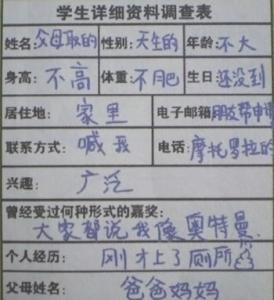 学生详细资料调查表
姓名: 父母取的 性别: 天生的 年龄: 不大
身高: 不高 体重: 不肥 生日: 还没到
居住地: 家里 电子邮箱 朋友帮申
联系方式: 喊我 电话: 摩托罗拉的
兴趣: 广泛
曾经受过何种形式的嘉奖:
大家都说我像奥特曼
个人经历: 刚才上了厕所
父母姓名: 爸爸妈妈